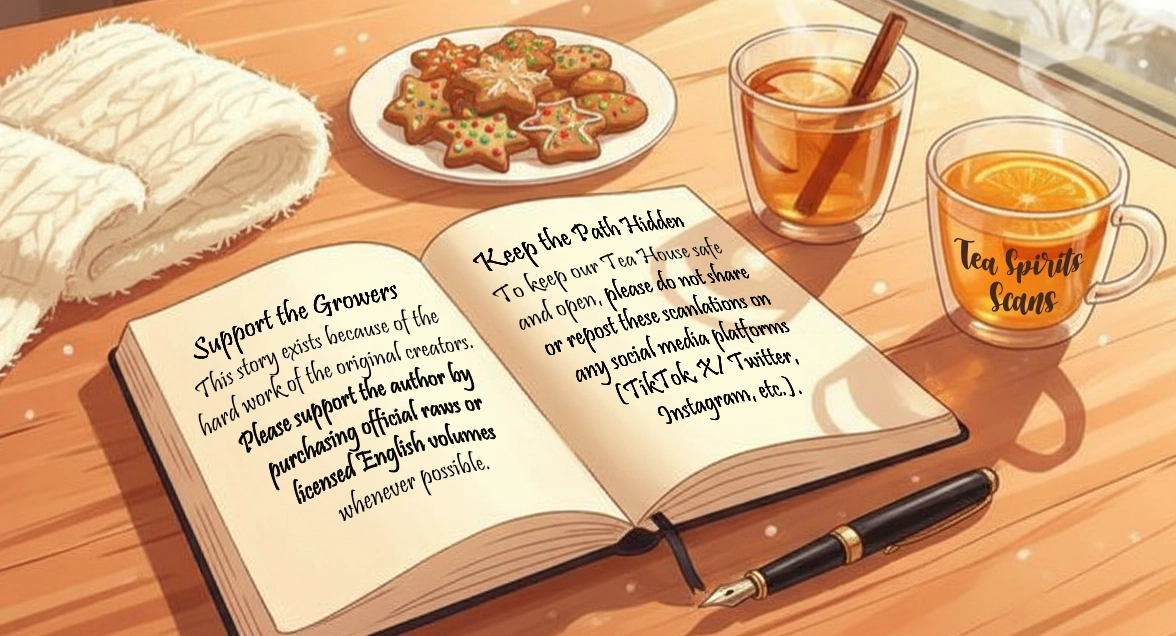 Support the Growers
This story exists because of the
hard work of the original creators.
Please support the author by
purchasing official raws or
licensed English volumes
whenever possible.
Keep the Path Hidden
To keep our Tea House safe
and open, please do not share
or repost these scanlations on
any social media platforms
(TikTok, X/ Twitter,
Instagram, etc.).
Tea Spirits
Scans